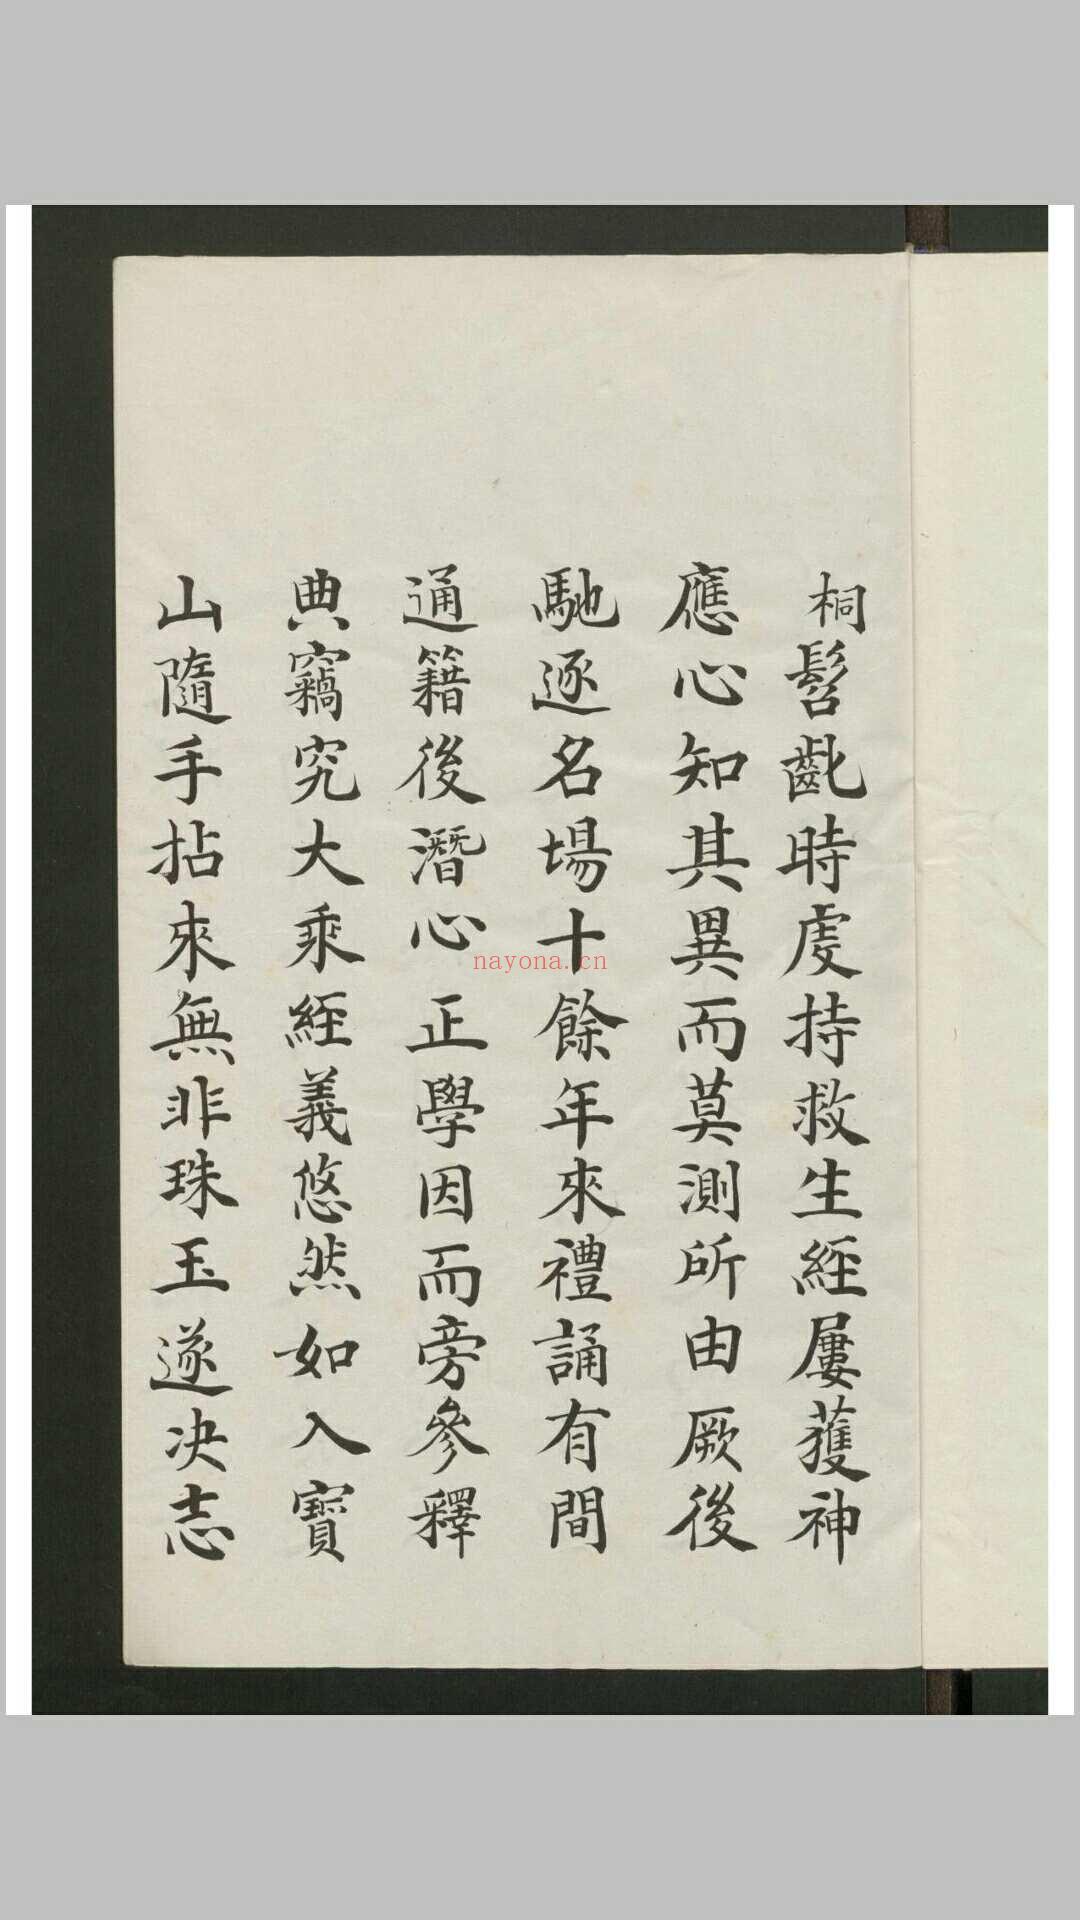 桐髫齔時虔持救生經屢獲神
應心知其異而莫測所由厥後
馳逐名場十餘年來禮誦有間
通籍後潛心正學因而旁參釋
典竊究大乘經義悠然如入寶
山隨手拈來無非珠玉遂決志
nayona.cn